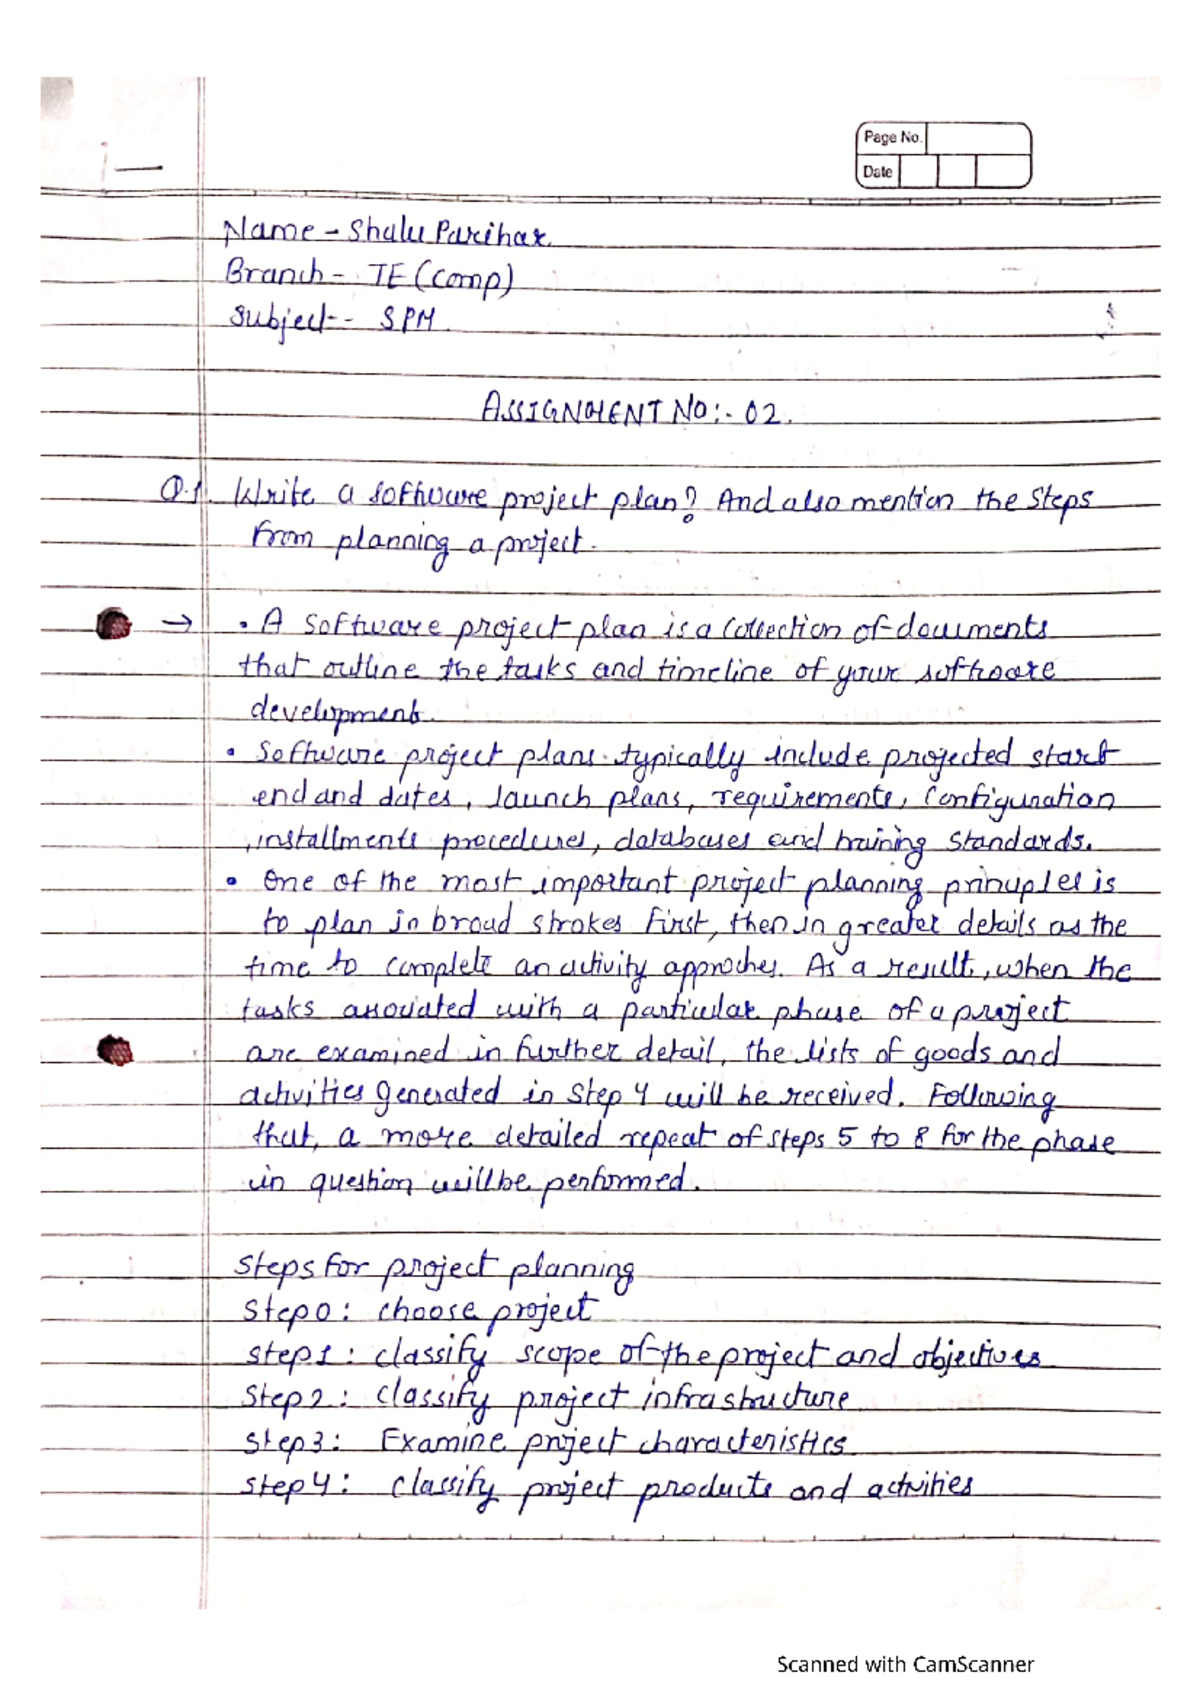 Page No.
Date
Name - Shalu Parihar
Branch - TE (comp)
Subject - - SPM
ASSIGNMENT NO:- 02.
Q.1. Write a software project plan? And also mention the Steps
from planning a project.
→ • A software project plan is a collection of documents
that outline the tasks and timeline of your software
development.
• Software project plans typically include projected start
end and dates, launch plans, requirements, configuration
, installments procedures, databases and training standards.
• One of the most important project planning principles is
to plan in broad strokes first, then in greater details as the
time to complete an activity approches. As a result, when the
tasks associated with a particular phase of a project
are examined in further detail, the lists of goods and
activities generated in step 4 will be received. Following
that, a more detailed repeat of steps 5 to 8 for the phase
in question will be performed.
Steps for project planning
Step 0 : choose project
Step 1 : classify scope of the project and objectives
Step 2 : classify project infrastructure
Step 3 : Examine project characteristics
Step 4 : classify project products and activities
Scanned with CamScanner